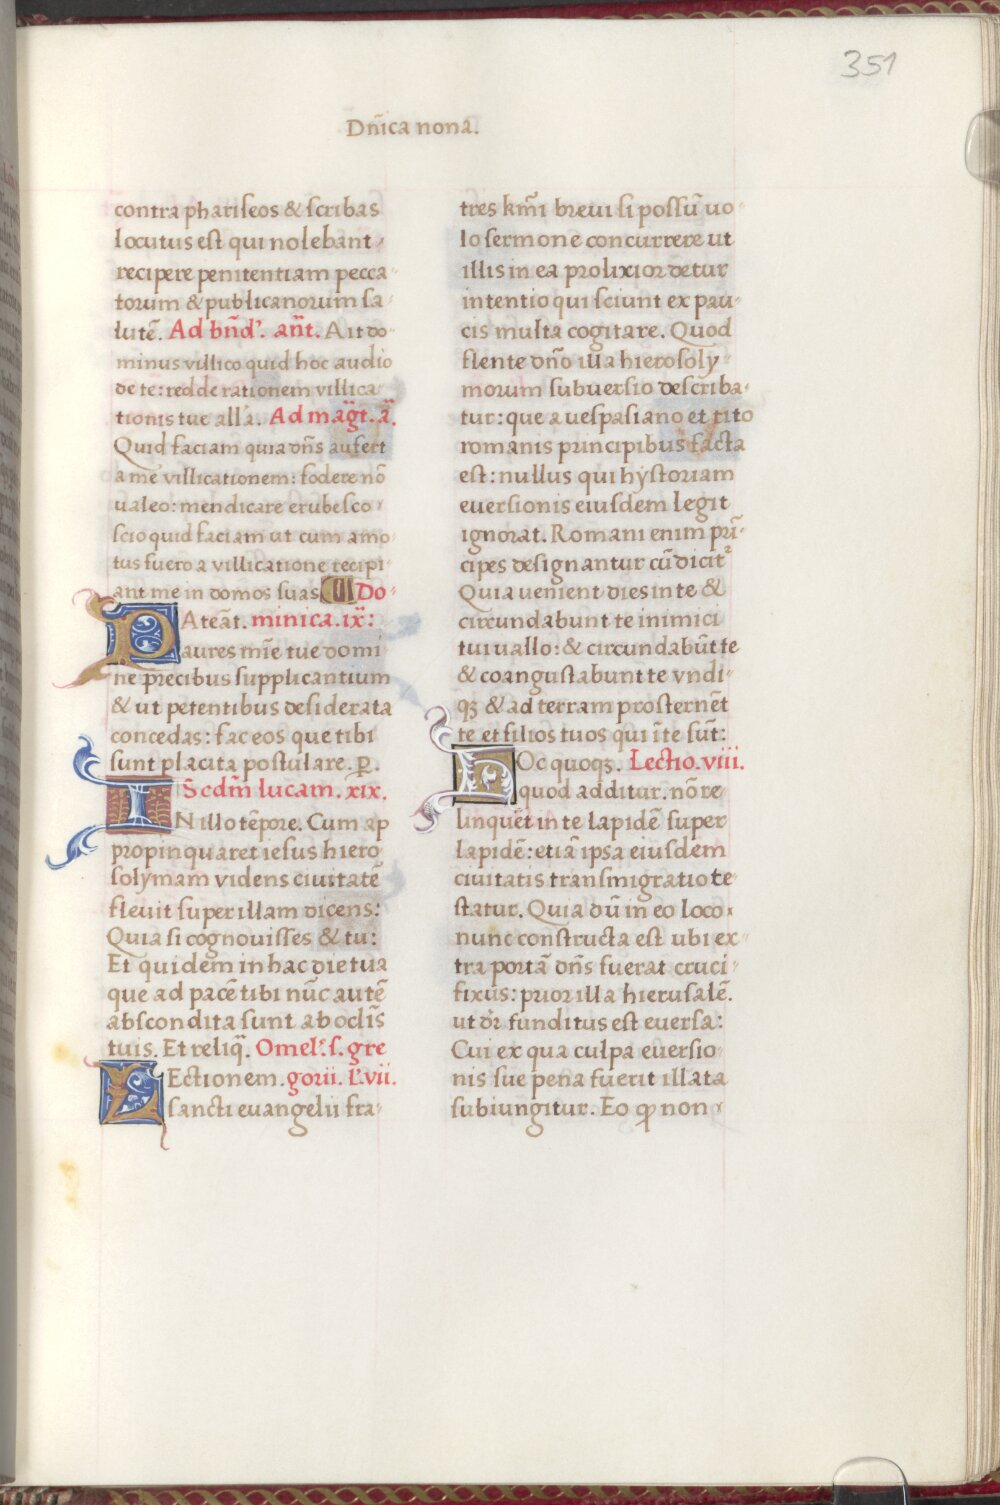 351
Dn̄ica nona.
contra phariſeos & ſcribas
locutus eſt qui nolebant
recipere penitentiam pecca
torum & publicanorum ſa
lutē. Ad bn̄d'. an̄t. Ait do
minus villico quid hoc audio
de te: redde rationem villica
tionis tue all'a. Ad mag̅t. a̅.
Quid faciam quia dn̄s aufert
a me villicationem: fodere nō
ualeo: mendicare erubeſco
ſcio quid faciam ut cum amo
tus fuero a villicatione recipi
ant me in domos ſuas. Do
Ateāt. minica. ix:
Paures mīe tue domi
ne precibus ſupplicantium
& ut petentibus deſiderata
concedas: fac eos que tibi
ſunt placita poſtulare. p.
S̄cdm̄ lucam. xix.
IN illo tēpore. Cum ap
propinquaret ieſus hiero
ſolymam videns ciuitatē
fleuit ſuper illam dicens:
Quia ſi cognouiſſes & tu:
Et quidem in hac die tua
que ad pacē tibi nūc autē
abſcondita ſunt ab oclīs
tuis. Et reliq̄. Omel'. ſ. gre
LEctionem. gorii. l'. vii.
ſancti euangelii fra
tres km̄i breui ſi poſſū uo
lo ſermone concurrere ut
illis in ea prolixior detur
intentio qui ſciunt ex pau
cis multa cogitare. Quod
flente dn̄o illa hieroſoly
morum ſubuerſio deſcriba
tur: que a ueſpaſiano et tito
romanis principibus facta
eſt: nullus qui hyſtoriam
euerſionis eiuſdem legit
ignorat. Romani enim pri̅
cipes deſignantur cū dicit᷑
Quia uenient dies in te &
circundabunt te inimici
tui uallo: & circundabūt te
& coanguſtabunt te vndi
qȝ & ad terram proſternēt
te et filios tuos qui īte ſūt:
HOc quoqȝ. Lectio. viii.
quod additur. nō re
linquēt in te lapidē ſuper
lapidē: etiā ipſa eiuſdem
ciuitatis tranſmigratio te
ſtatur. Quia dū in eo loco
nunc conſtructa eſt ubi ex
tra portā dn̄s fuerat cruci
fixus: prior illa hieruſalē.
ut dr̄ funditus eſt euerſa:
Cui ex qua culpa euerſio
nis ſue pena fuerit illata
ſubiungitur. Eo ꝙ non